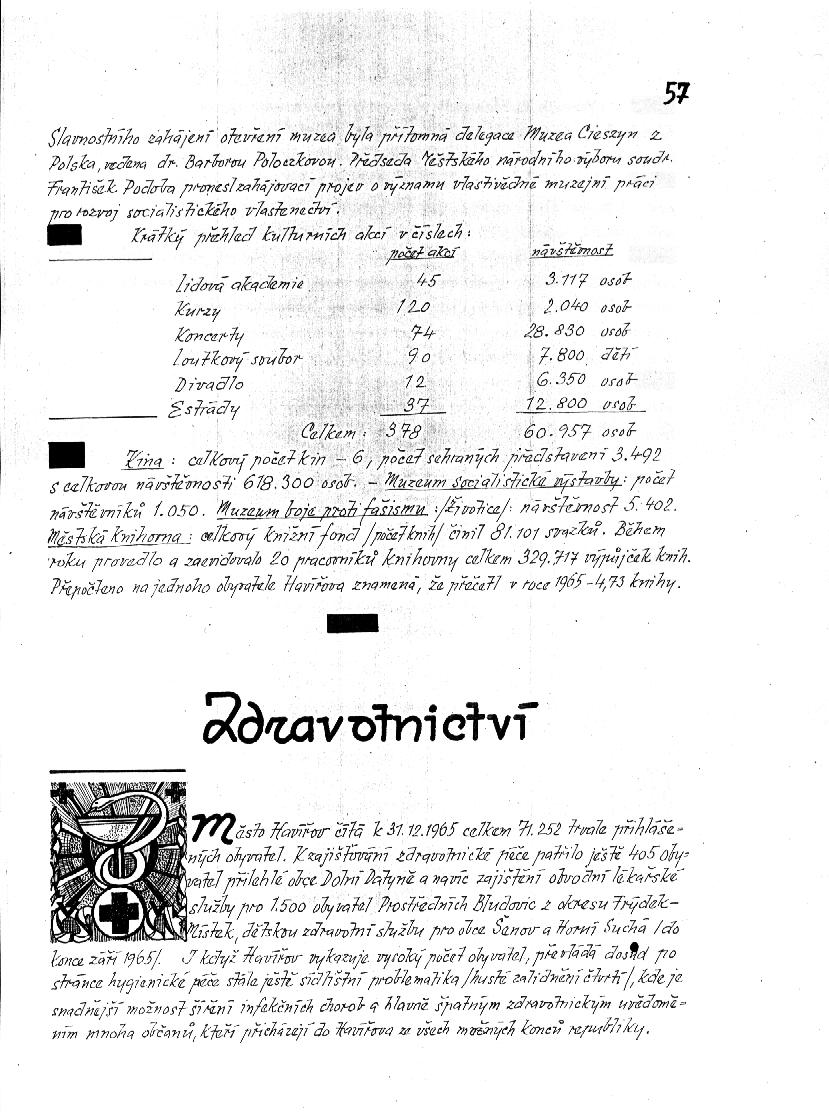 57
Slavnostního zahájení otevření muzea byla přítomná delegace Muzea Cieszyn z
Polska, vedena dr. Barborou Poloczkovou. Předseda Městského národního výboru soudr.
František Podoba pronesl zahajovací projev o významu vlastivědné muzejní práci
pro rozvoj socialistického vlastenectví.
Krátký přehled kulturních akcí v číslech:
počet akcí návštěvnost
Lidová akademie 45 3.117 osob
Kurzy 120 2.040 osob
Koncerty 74 28.830 osob
Loutkový soubor 90 7.800 dětí
Divadlo 12 6.350 osob
Estrády 37 12.800 osob
Celkem: 378 60.957 osob
Kina: celkový počet kin – 6, počet sehraných představení 3.492
s celkovou návštěvností 618.300 osob. – Muzeum socialistické výstavby: počet
návštěvníků 1.050. Muzeum boje proti fašismu :/Životice/: návštěvnost 5.402.
Městská knihovna: celkový knižní fond /počet knih/ činil 81.101 svazků. Během
roku provedlo a zaevidovalo 20 pracovníků knihovny celkem 329.717 výpůjček knih.
Přepočteno na jednoho obyvatele Havířova znamená, že přečetl v roce 1965 – 4,73 knihy.
Zdravotnictví
Město Havířov čítá k 31.12.1965 celkem 71.252 trvale přihláše=
ných obyvatel. K zajišťování zdravotnické péče patřilo ještě 405 oby=
vatel přilehlé obce Dolní Datyně a navíc zajištění obvodní lékařské
služby pro 1.500 obyvatel Prostředních Bludovic z okresu Frýdek–
Místek, dětskou zdravotní službu pro obce Šenov a Horní Suchá /do
konce září 1965/. I když Havířov vykazuje vysoký počet obyvatel, převládá dosud po
stránce hygienické péče stále ještě sídlištní problematika /husté zalidnění čtvrtí/, kde je
snadnější možnost šíření infekčních chorob a hlavně špatným zdravotnickým uvědomě=
ním mnoha občanů, kteří přicházejí do Havířova ze všech možných konců republiky.